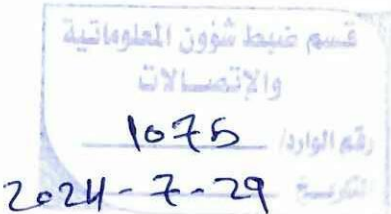 قسم ضبط شؤون المعلوماتية
والإتصالات
رقم الوارد/ 1075
التاريخ 2024-7-29